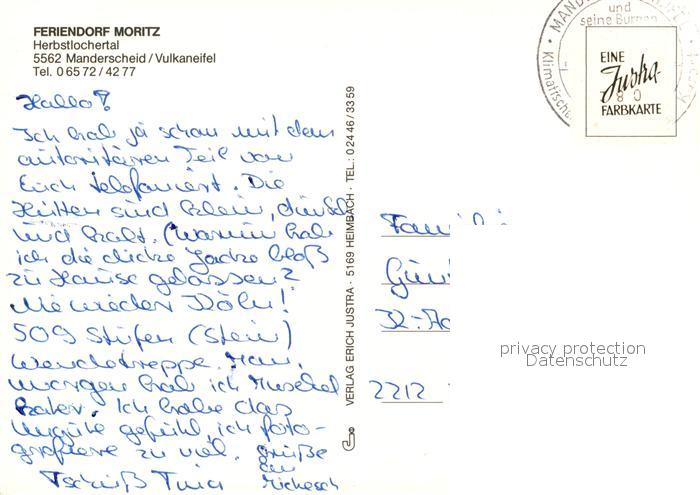 FERIENDORF MORITZ
Herbstlochertal
5562 Manderscheid / Vulkaneifel
Tel. 0 65 72 / 42 77
Hallo!
Ich hab ja schon mit dem
autoritären Teil von
Euch telefoniert. Die
Hütten sind klein, dunkel
und kalt. (Warum hab
ich die dicke Jacke bloß
zu Hause gelassen?
Nie wieder Köln!
509 Stufen (Stein)
Wendeltreppe. Man,
morgen hab ich Muskel
kater. Ich habe das
Ungute gefühl, ich foto-
grafiere zu viel. Grüße
Tschüß Tina
VERLAG ERICH JUSTRA · 5169 HEIMBACH · TEL.: 0 24 46 / 33 59
und
seine Burgen
Klimatische
EINE
Justra-
FARBKARTE
Fami
Gün
32-
2212
privacy protection
Datenschutz